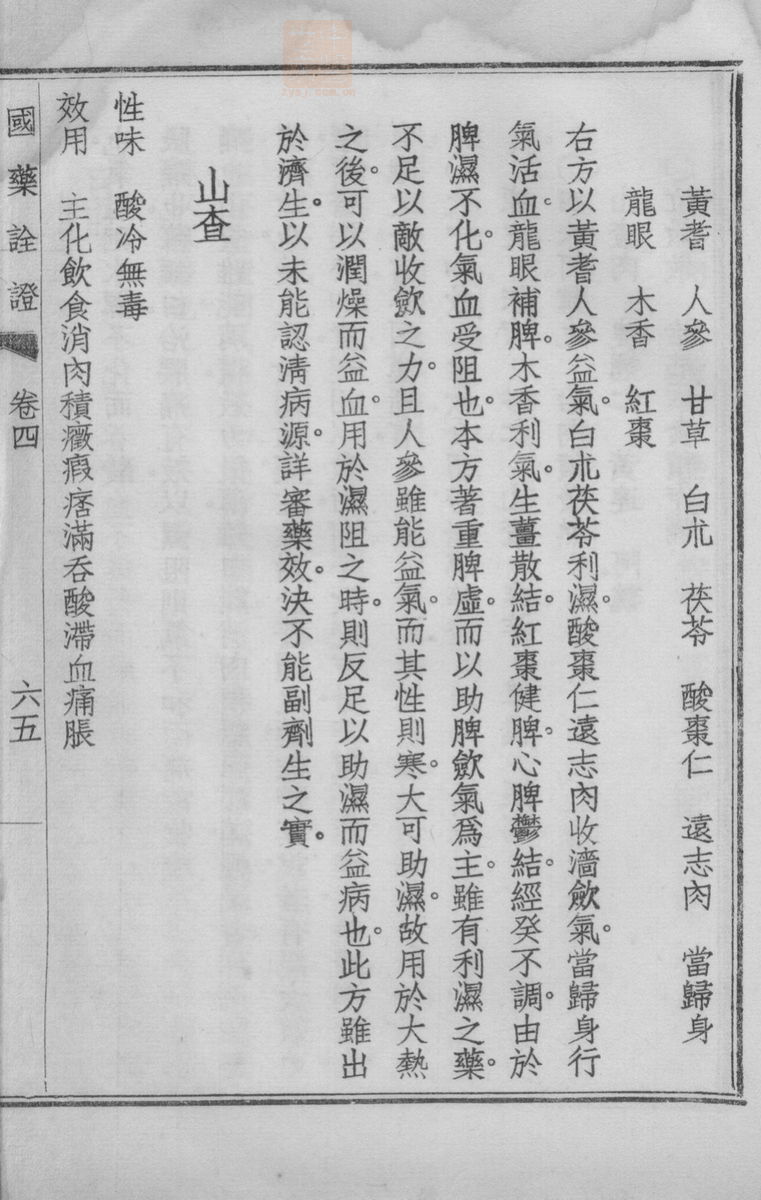 黃耆　人參　甘草　白朮　茯苓　酸棗仁　遠志肉　當歸身
龍眼　木香　紅棗
右方以黃耆人參益氣。白朮茯苓利濕。酸棗仁遠志肉收濇歛氣。當歸身行
氣活血。龍眼補脾。木香利氣。生薑散結。紅棗健脾。心脾鬱結。經癸不調。由於
脾濕不化。氣血受阻也。本方著重脾虛。而以助脾歛氣爲主。雖有利濕之藥。
不足以敵收歛之力。且人參雖能益氣。而其性則寒。大可助濕。故用於大熱
之後。可以潤燥而益血。用於濕阻之時。則反足以助濕而益病也。此方雖出
於濟生。以未能認淸病源。詳審藥效。決不能副劑生之實。
山查
性味　酸冷無毒
效用　主化飲食消肉積癥瘕痞滿吞酸滯血痛脹
國藥詮證　卷四　六五
zysj.com.cn